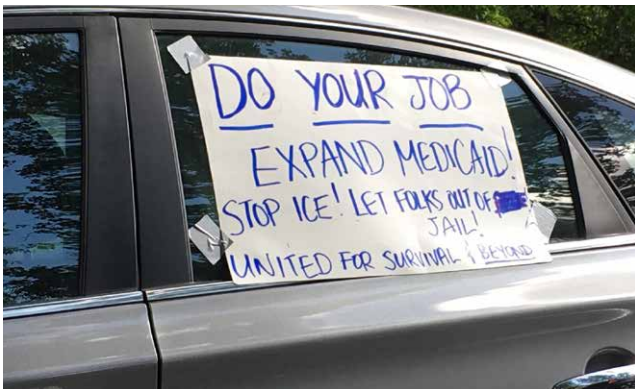 DO YOUR JOB
EXPAND MEDICAID!
STOP ICE! LET FOLKS OUT OF
JAIL!
UNITED FOR SURVIVAL & BEYOND